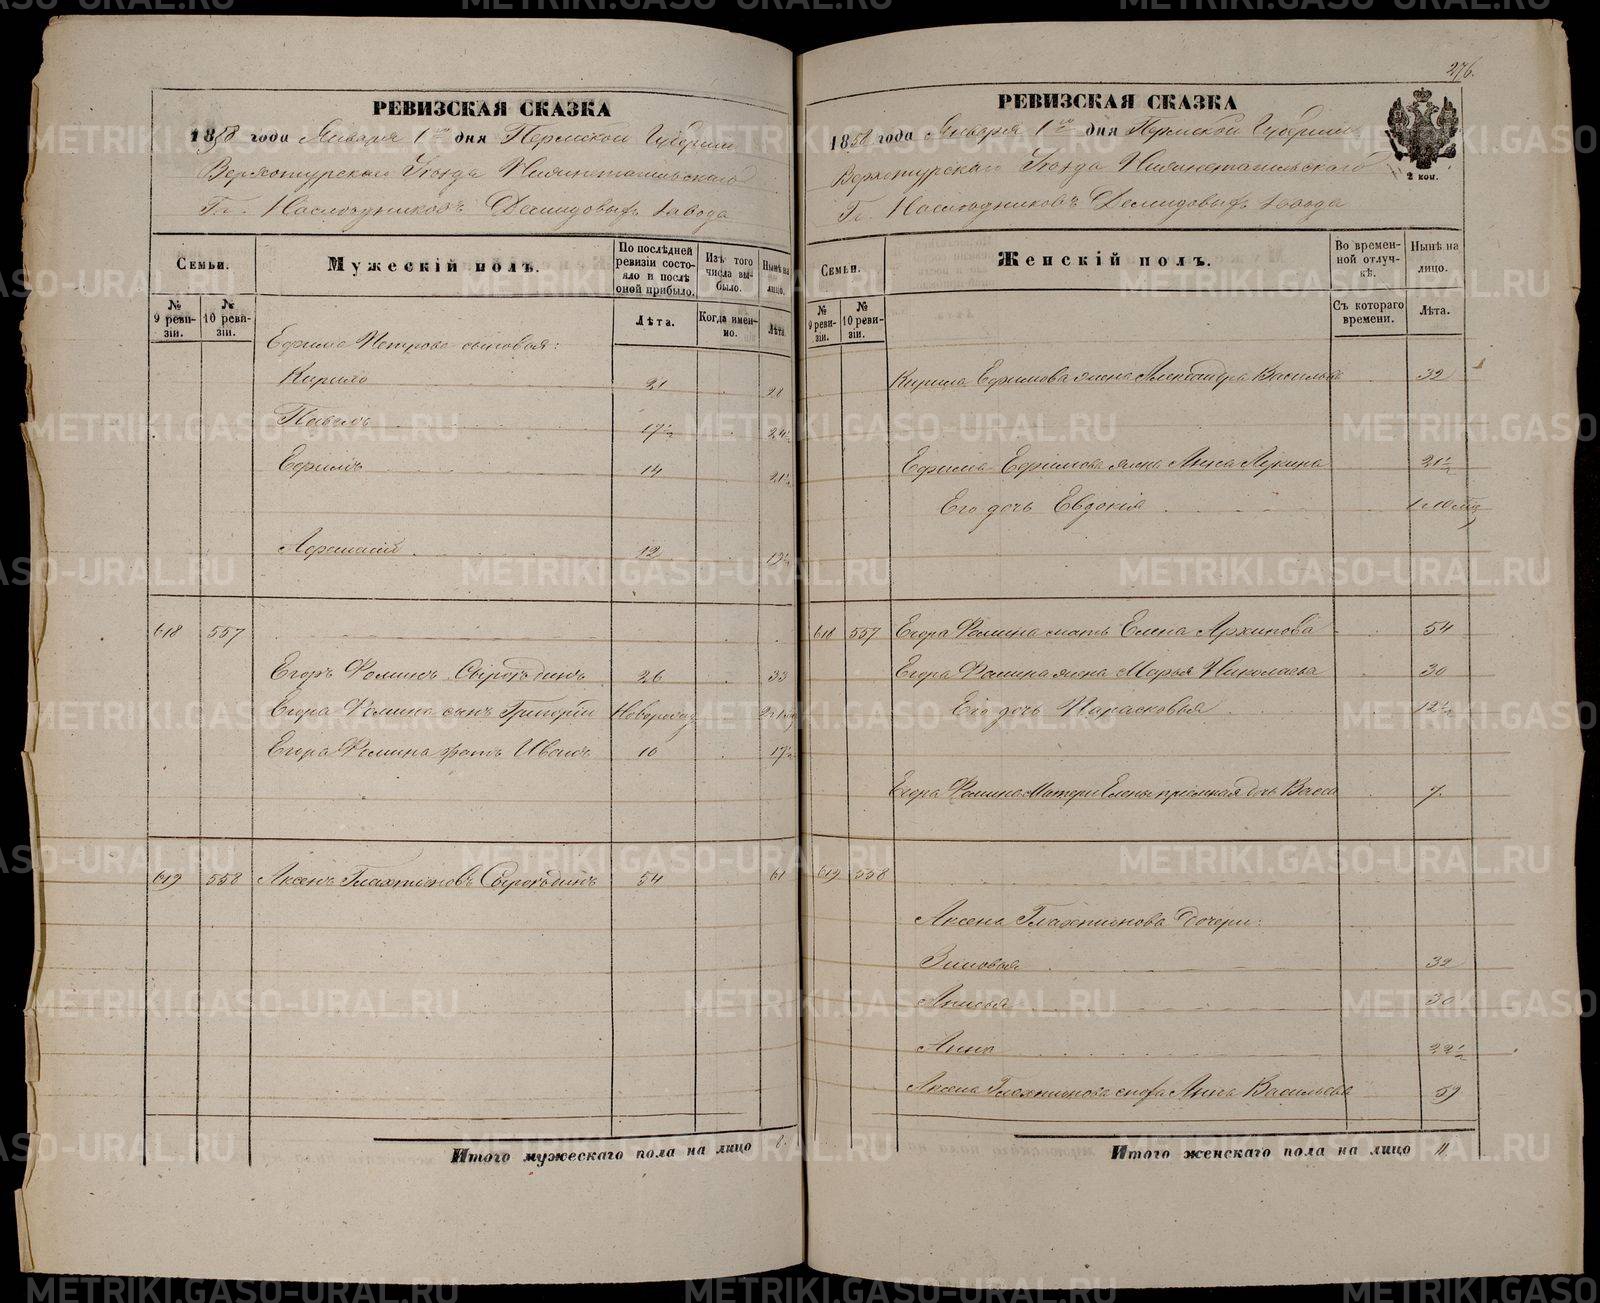 РЕВИЗСКАЯ СКАЗКА
1858 года Января 1го дня Пермской Губернии
Верхотурскаго Уѣзда Нижнетагильскаго
Гг. Наслѣдниковъ Демидовыхъ завода
Семьи.
№ 9 ревизіи.
№ 10 ревизіи.
Мужескій полъ.
По послѣдней ревизіи состояло и послѣ оной прибыло.
Изъ того числа выбыло.
Нынѣ на лицо.
Лѣта.
Когда именно.
Лѣта
Ефима Петрова сыновья:
Кирило 21 28
Павелъ 17½ 24½
Ефимъ 14 21½
Афанасій 12 19½
618 557
Егоръ Фоминъ Сыропядинъ 26 33
Егора Фомина сынъ Григорій Новорожд
Егора Фомина братъ Иванъ 10 17½
619 558 Аксенъ 54 61
Итого мужескаго пола на лицо 8.
276.
РЕВИЗСКАЯ СКАЗКА
1858 года Января 1го дня Пермской Губерніи
Верхотурскаго Уѣзда Нижнетагильскаго
Гг. Наслѣдниковъ Демидовыхъ завода
2 коп.
Семьи.
№ 9 ревизіи.
№ 10 ревизіи.
Женскій полъ.
Во временной отлучкѣ.
Нынѣ на лицо.
Съ котораго времени.
Лѣта.
Кирила Ефимова жена Александра Васильева 32
Ефима Ефимова жена Анна Лукина 21½
Его дочь Евдокія 1 10 мц
618 557 Егора Фомина мать Елена Архипова 54
Егора Фомина жена Марья Николаева 30
Его дочь Парасковья 12½
Егора Фомина Матери Елены пріемная дочь Васса 7.
619 558
Аксена дочери:
Зиновья 32
Анисья 30
Анна 22½
Аксена сноха Анна Васильева 59
Итого женскаго пола на лицо 11.
METRIKI.GASO-URAL.RU